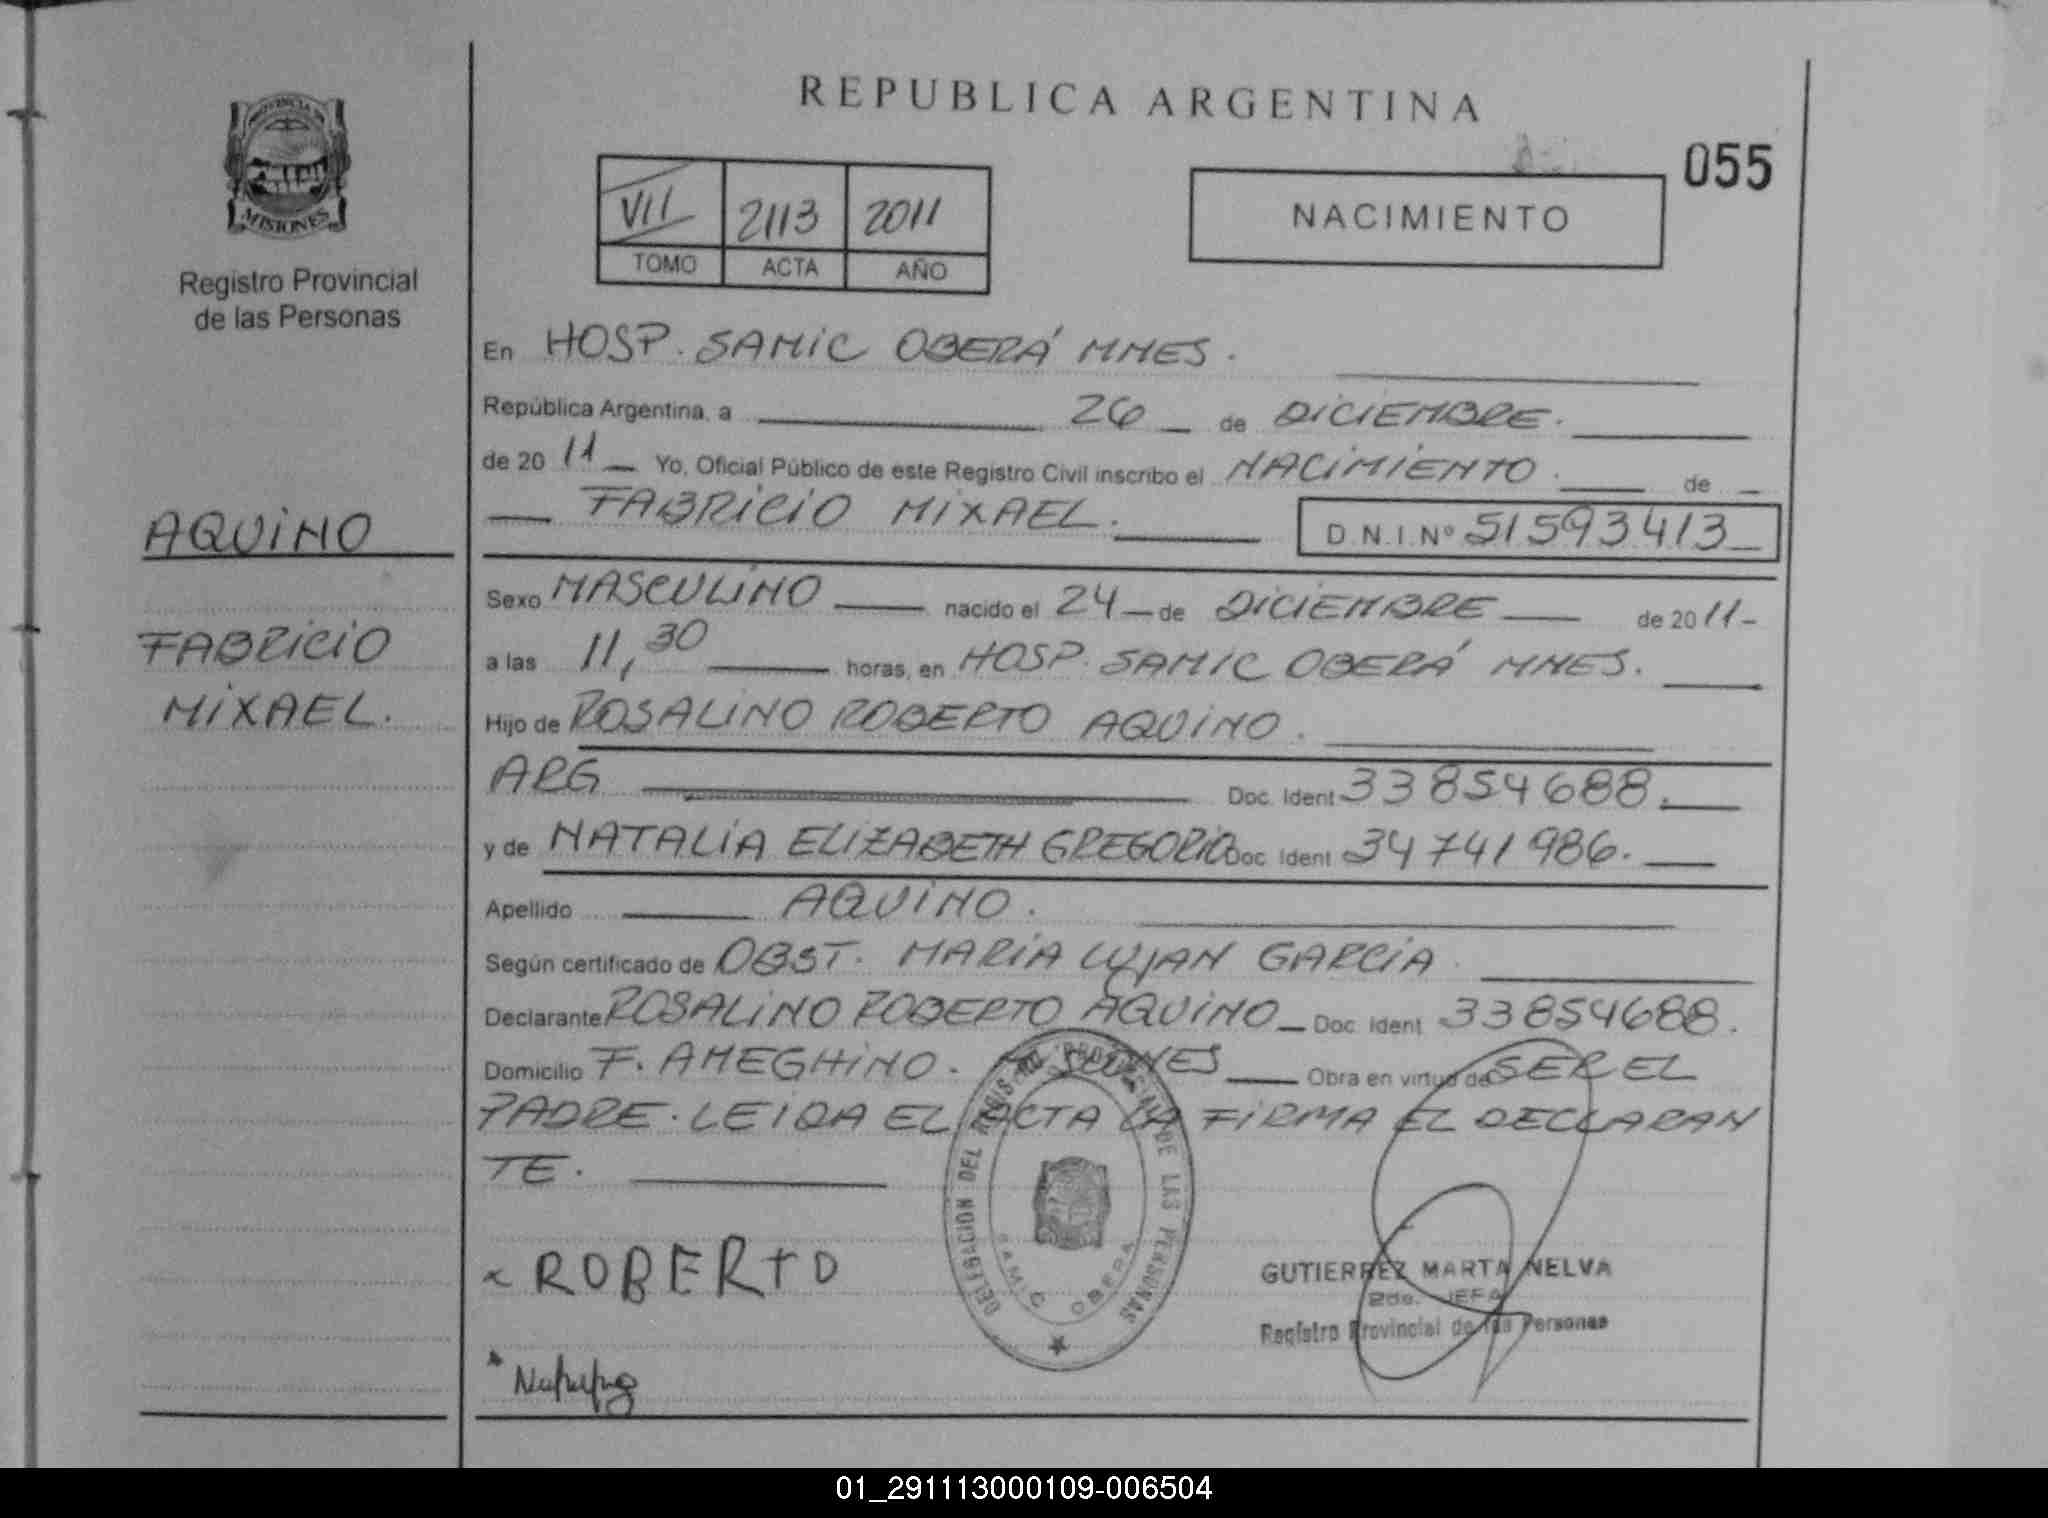 REPUBLICA ARGENTINA
055
PROVINCIA DE
MISIONES
Registro Provincial
de las Personas
VII 2113 2011
TOMO ACTA AÑO
NACIMIENTO
En HOSP. SAMIC OBERÁ MNES.
República Argentina, a 26 de DICIEMBRE.
de 20 11 Yo, Oficial Público de este Registro Civil inscribo el NACIMIENTO. de
FABRICIO MIXAEL. D.N.I. Nº 51593413
AQUINO
FABRICIO
MIXAEL.
Sexo MASCULINO nacido el 24 de DICIEMBRE de 20 11
a las 11,30 horas, en HOSP. SAMIC OBERÁ MNES.
Hijo de ROSALINO ROBERTO AQUINO.
ARG Doc. Ident 33854688.
y de NATALIA ELIZABETH GREGORIO Doc Ident 34741986.
Apellido AQUINO.
Según certificado de OBST. MARIA LUJAN GARCIA.
Declarante ROSALINO ROBERTO AQUINO Doc. Ident 33854688.
Domicilio F. AMEGHINO. Obra en virtud de SER EL
PADRE. LEIDA EL ACTA LA FIRMA EL DECLARAN
TE.
DELEGACION DEL REGISTRO PROVINCIAL DE LAS PERSONAS
SAMIC OBERA
x ROBERTO
GUTIERREZ MARTA NELVA
2da. JEFA
Registro Provincial de las Personas
01_291113000109-006504